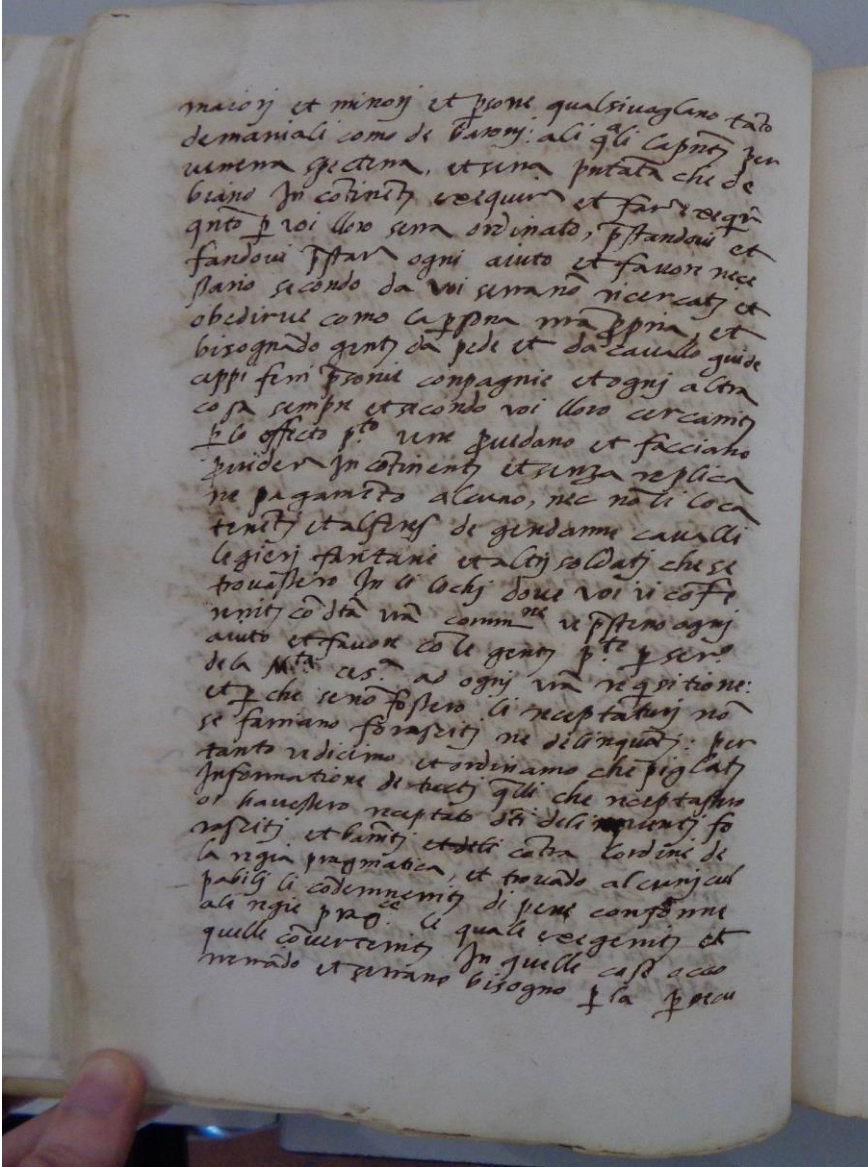 maiorj et minorj et p̄sone qualsivoglano tāto
demaniali como de baronj: ali q̄ali la p̄ntj per
venerra spectera, et serrà p̄ntata che de
biano In cōtinentj exequirᵃ et farᵃ exequirᵃ
qnto p̄ voi lloro serra ordinato, p̄standovi et
fandovi p̄starᵃ ogni aiuto et favore nece
ssario secondo da voi serranō ricercatj et
obedirve como la p̄sona nr̄a p̄pria, et
bisognādo gentj da pede et da cavallo guide
ceppi ferri p̄sonie conpagnie et ognj altra
cosa sempre et secondo voi lloro cercaritj
p̄ lo effecto p.ᵗᵒ ve ne p̄vedano et facciano
p̄vider In cōtinentj et senza replica
ne pagamēto alcuno, nec nō li loca
tenētj et alferes de gendarme cavalli
legierj fantarie et altrj soldatj che se
trovassero In li lochj dove voi vi cōfe
ritj cō dt̄a vr̄a comm.ⁿᵉ ve p̄steno ognj
aiuto et favore cō le gentj p.ᵗᵉ p̄ ser.ᵒ
dela M.ᵗᵃ ces.ᵃ ad ognj vr̄a reqsitione:
et p̄ che se nō fossero li receptaturj nō
se farriano forascitj ne delinquētj: per
tanto ve dicimo et ordinamo che pigliatj
Informatione de tuctj q̄lli che receptassero
o havessero receptato dt̄i delinquentj fo
rascitj et bannitj et deli cōtra l'ordine de
la regia pragmatica, et trovādo alcunj cul
pabilj li cōdemneritj di pene conforme
ali regie prag.ᶜᵉ le quale exegeritj et
quelle cōverteritj In quelle cose occo
rrerādo et serrano bisogno p̄ la p̄secu